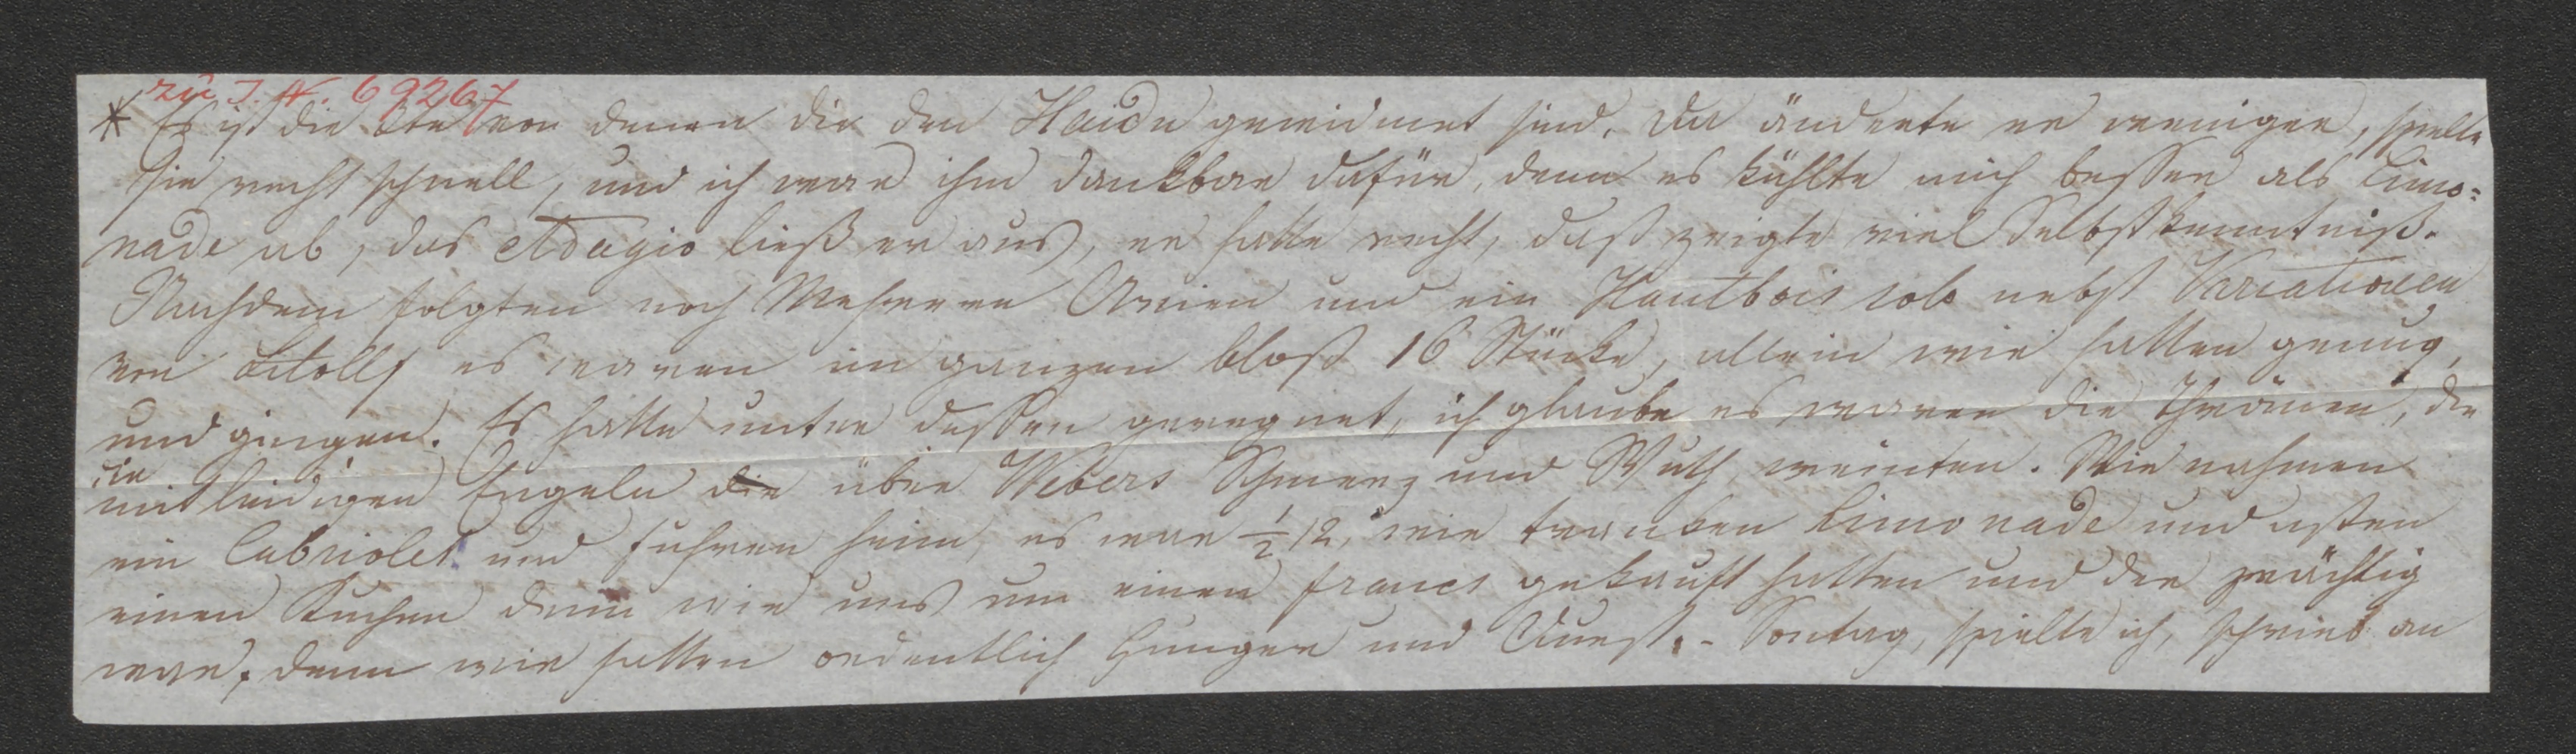 zu I.N. 69267
* Es ist die 2te von denen die den Haidn gewidmet sind. Da änderte er weniger, spielte
sie recht schnell, und ich war ihm dankbar dafür, denn es kühlte mich besser als Limo=
nade ab, das Adagio ließ er aus, er hatte recht, daß zeigte viel Selbstkenntniß.
Nachdem folgten noch Mehrere Arien und ein Hautbois solo nebst Variationen
von Litolff es waren im ganzen bloß 16 Stücke, allein wir hatten genug,
und gingen. Es hatte unter dessen geregnet, ich glaube es waren die Thränen, die
die
mitleidigen Engeln die über Webers Schmerz und Wuth weinten. Wir nahmen
ein Cabriolet und fuhren heim, es war ½ 12, wir tranken Limonade und aßen
einen Kuchen denn wir uns um einen francs gekauft hatten und der prächtig
war, denn wir hatten ordentlich Hunger und Durst. - Sontag, spielte ich, schrieb an